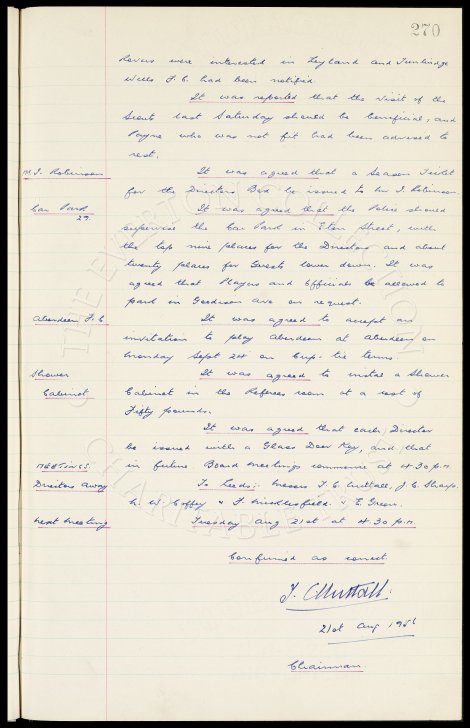 270
Rovers were interested in Leyland and Tunbridge
Wells F.C. had been notified.
It was reported that the visit of the
Scouts last Saturday should be beneficial, and
Payne who was not fit had been advised to
rest.
Mr. I. Robinson It was agreed that a Season Ticket
for the Directors Box be issued to Mr I. Robinson.
Car Park It was agreed that the Police should
29. supervise the Car Park in Eton Street, with
the top nine places for the Directors and about
twenty places for Guests lower down. It was
agreed that Players and Officials be allowed to
park in Goodison Ave on request.
Aberdeen F.C. It was agreed to accept an
invitation to play Aberdeen at Aberdeen on
Monday Sept 24 on Cup-tie terms.
Shower It was agreed to instal a Shower
Cabinet Cabinet in the Referees room at a cost of
Fifty pounds.
It was agreed that each Director
be issued with a Glass Door Key, and that
MEETINGS. in future Board Meetings commence at 4.30 p.m.
Directors Away To Leeds:- Messrs T.C. Nuttall, J.C. Sharp,
Coffey & F. Micklesfield. E. Green.
Next Meeting Tuesday Aug 21st at 4.30 p.m.
Confirmed as correct
T. C Nuttall.
21st Aug 1956
Chairman.
THE EVERTON COLLECTION
CHARITABLE